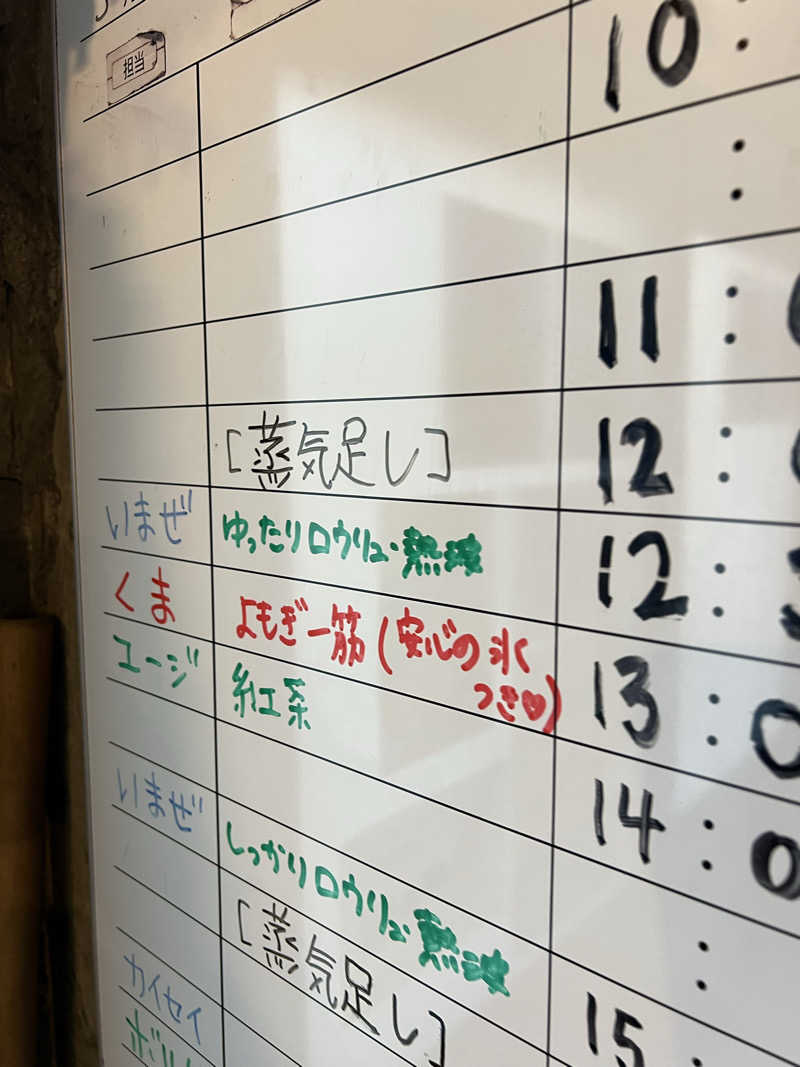 担当
10:
:
11:
[蒸気足し] 12:
いまぜ ゆったりロウリュ・熱波 12:
くま よもぎ一筋(安心の氷
つき♥) 13:0
ユージ 紅茶 14:0
いまぜ しっかりロウリュ・熱波 :
[蒸気足し] 15:
カイセイ